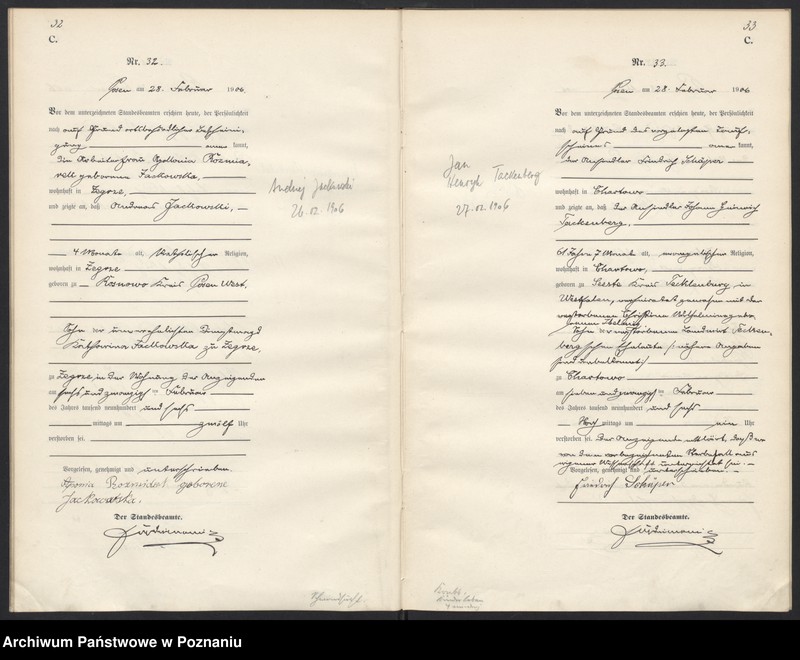 32
C.
Nr. 32.
Posen am 28. Februar 1906
Vor dem unterzeichneten Standesbeamten erschien heute, der Persönlichkeit
nach auf Grund
kannt,
die Arbeiterfrau Apollonia
geborene Jackowska,
wohnhaft in Zegrze,
und zeigte an, daß Andreas Jackowski,
4 Monate alt, katholischer Religion,
wohnhaft in Zegrze
geboren zu Kosnowo Kreis Posen West,
Sohn der unverehelichten Dienstmagd
Jackowska zu Zegrze,
zu Zegrze, in der Wohnung der Anzeigenden
am sechs und zwanzigsten Februar
des Jahres tausend neunhundert und sechs
mittags um zwölf Uhr
verstorben sei.
Vorgelesen, genehmigt und unterschrieben.
geborene
Jackowska.
Der Standesbeamte.
Andrzej Jackowski
26.02.1906
33
C.
Nr. 33.
Posen am 28. Februar 1906
Vor dem unterzeichneten Standesbeamten erschien heute, der Persönlichkeit
nach auf Grund des vorgelegten Tauf-
scheines kannt,
der Ansiedler Friedrich Schäper
wohnhaft in Chartowo
und zeigte an, daß der Ansiedler Johann Heinrich
Tackenberg,
61 Jahre, 7 Monate alt, evangelischer Religion,
wohnhaft in Chartowo,
geboren zu Leeste Kreis Tecklenburg in
Westfalen, verheiratet gewesen mit der
verstorbenen Christine Wilhelmine
Sohn der verstorbenen Landwirt Tacken-
berg'schen Eheleute (nähere Angaben
sind unbekannt)
zu Chartowo
am sieben und zwanzigsten Februar
des Jahres tausend neunhundert und sechs
Nachmittags um ein Uhr
verstorben sei. Der Anzeigende erklärt, daß er
von dem vorbezeichneten Sterbefall aus
eigener Wissenschaft unterrichtet sei.
Vorgelesen, genehmigt und unterschrieben.
Friedrich Schäper
Der Standesbeamte.
Jan
Henryk Tackenberg
27.02.1906
Archiwum Państwowe w Poznaniu